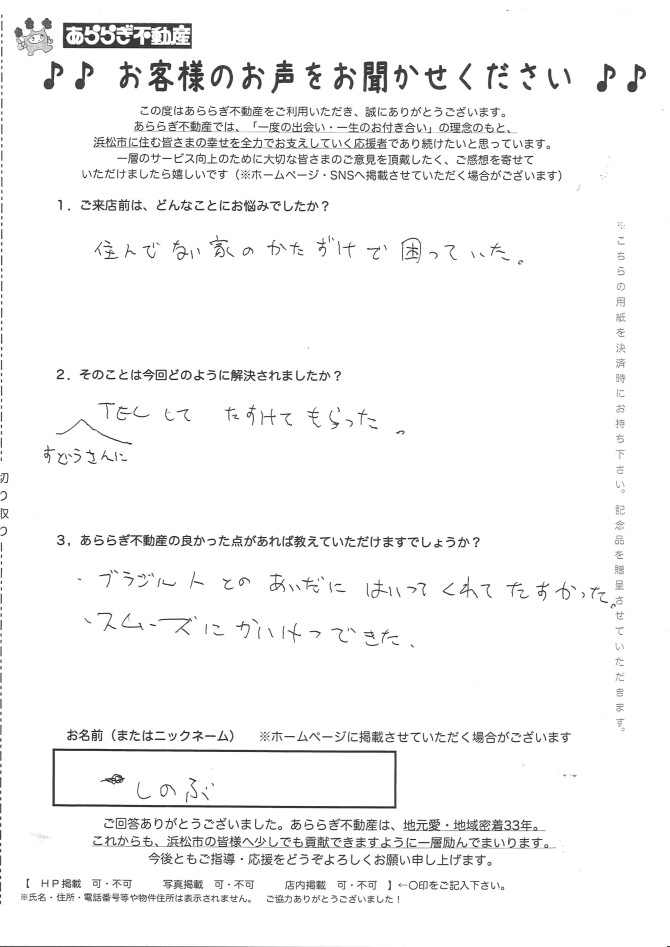 あららぎ不動産
♪♪ お客様のお声をお聞かせください ♪♪
この度はあららぎ不動産をご利用いただき、誠にありがとうございます。
あららぎ不動産では、「一度の出会い・一生のお付き合い」の理念のもと、
浜松市に住む皆さまの幸せを全力でお支えしていく応援者であり続けたいと思っています。
一層のサービス向上のために大切な皆さまのご意見を頂戴したく、ご感想を寄せて
いただけましたら嬉しいです（※ホームページ・SNSへ掲載させていただく場合がございます）
1．ご来店前は、どんなことにお悩みでしたか？
住んでない家のかたずけで困っていた。
2．そのことは今回どのように解決されましたか？
TELして たすけてもらった。
すどうさんに
3，あららぎ不動産の良かった点があれば教えていただけますでしょうか？
・ブラジル人とのあいだにはいってくれてたすかった。
・スムーズにかいけつできた、
お名前（またはニックネーム） ※ホームページに掲載させていただく場合がございます
しのぶ
ご回答ありがとうございました。あららぎ不動産は、地元愛・地域密着33年。
これからも、浜松市の皆様へ少しでも貢献できますように一層励んでまいります。
今後ともご指導・応援をどうぞよろしくお願い申し上げます。
【 HP掲載 可・不可 写真掲載 可・不可 店内掲載 可・不可 】←〇印をご記入下さい。
※氏名・住所・電話番号等や物件住所は表示されません。 ご協力ありがとうございました！
※こちらの用紙を決済時にお持ち下さい。記念品を贈呈させていただきます。
切り取り